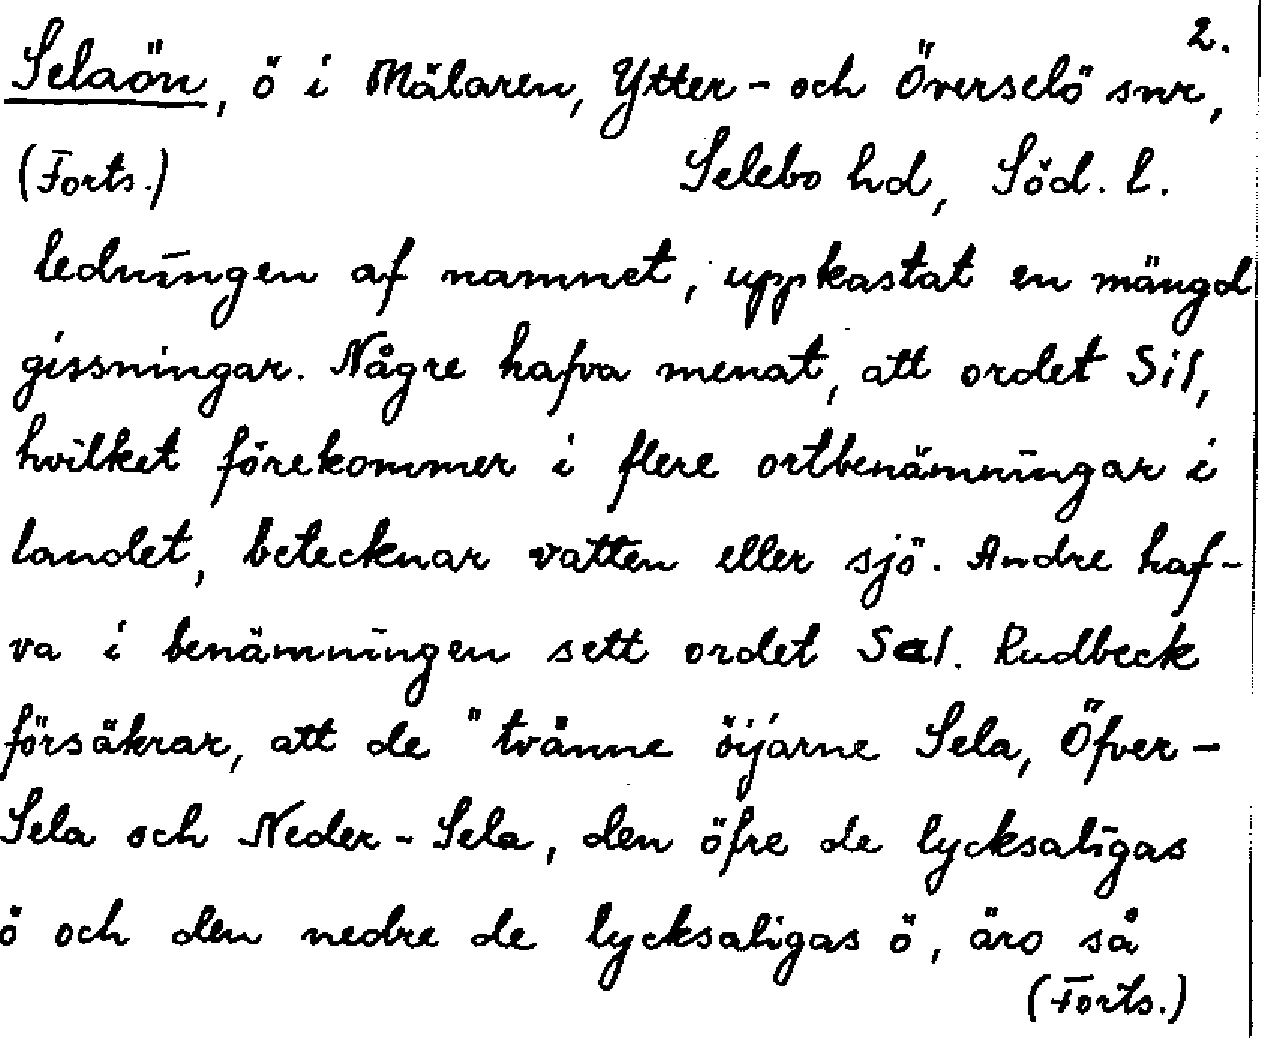 2.
Selaön, ö i Mälaren, Ytter- och Överselö snr,
(Forts.) Selebo hd, Söd. l.
ledningen af namnet, uppkastat en mängd
gissningar. Någre hafva menat, att ordet Sil,
hvilket förekommer i flere ortbenämningar i
landet, betecknar vatten eller sjö. Andre haf-
va i benämningen sett ordet Sal. Rudbeck
försäkrar, att de "tvånne öijarne Sela, Öfver-
Sela och Neder-Sela, den öfre de lycksaligas
ö och den nedre de lycksaligas ö, äro så
(Forts.)